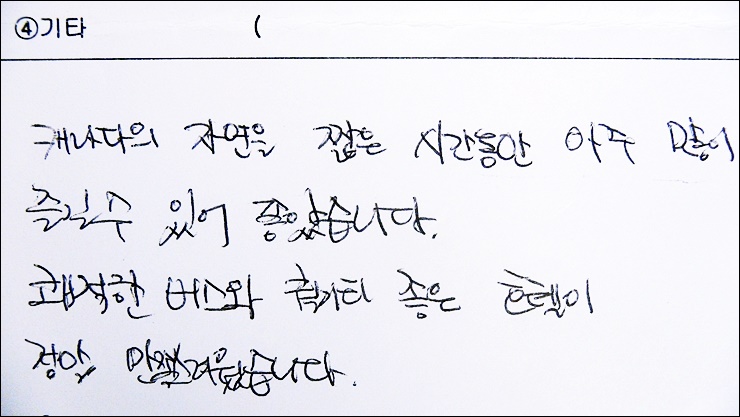 ④기타 (
캐나다의 자연을 짧은 시간동안 아주 많이
즐길수 있어 좋았습니다.
쾌적한 버스와 퀄리티 좋은 호텔이
정말 만족스러웠습니다.